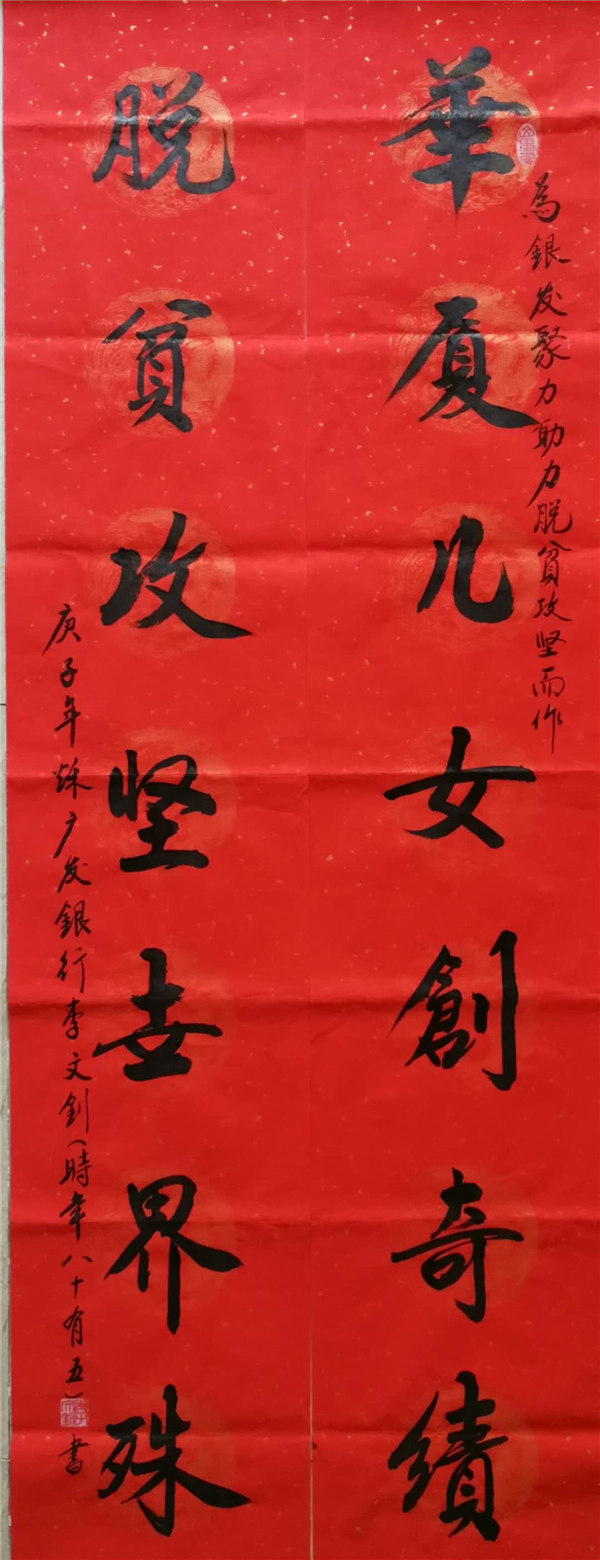 為銀发聚力助力脱貧攻坚而作
華厦儿女創奇績
脱貧攻坚世界殊
庚子年秌广发銀行李文釗(時年八十有五)書